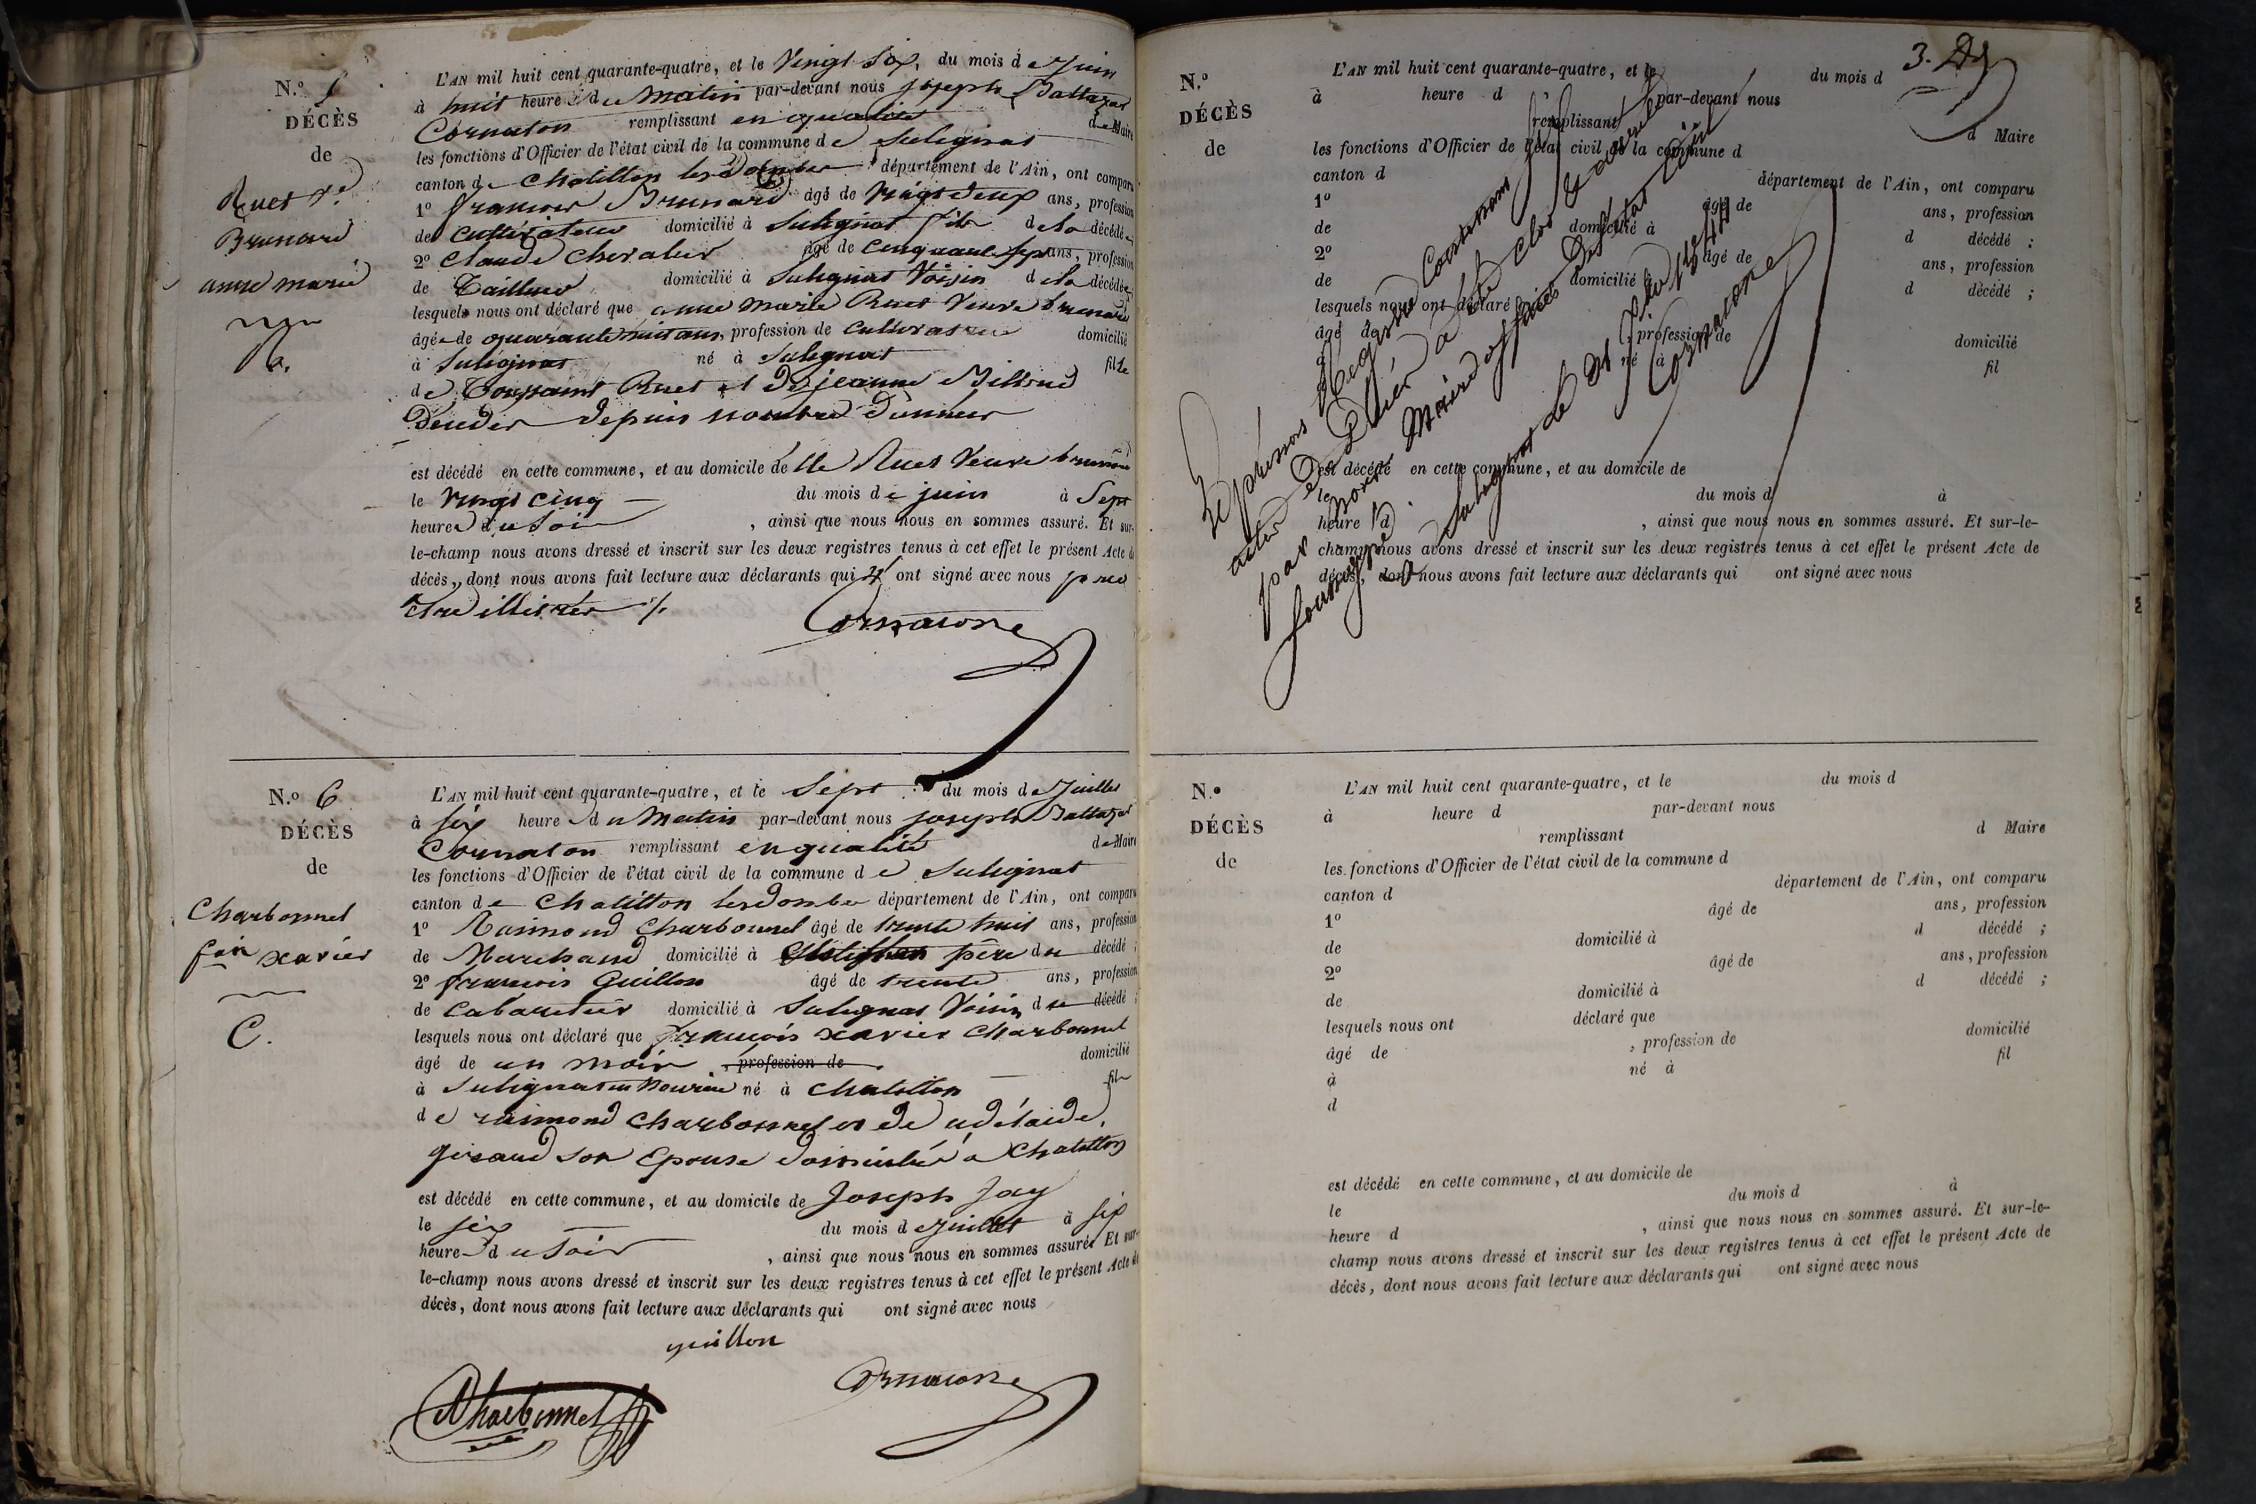 N.º 5
DÉCÈS
de
Ruet Ve
Brunard
anne marie
R.
L'AN mil huit cent quarante-quatre, et le Vingt Six, du mois de Juin
à huit heure du Matin par-devant nous joseph Baltazar
Cornaton remplissant en qualité de Maire
les fonctions d'Officier de l'état civil de la commune de Sulignat
canton de Chatillon les Dombes département de l'Ain, ont comparu
1º françois Brunard agé de Vingt deux ans, profession
de cultivateur domicilié à Sulignat fils de la décédée
2º Claude Chevalier âgé de Cinquante Sept ans, profession
de Tailleur domicilié à Sulignat Voisin de la décédée
lesquels nous ont déclaré que anne Marie Ruet Veuve brunard
âgée de quarante huit ans, profession de Cultivatrice domicilié
à Sulignat né à Sulignat fille
de Toussaint Ruet et De jeanne Milloud
Decedés depuis nombre D'années
est décédé en cette commune, et au domicile de lle Ruet Veuve brunard
le Vingt cinq du mois de juin à Sept
heures du Soir , ainsi que nous nous en sommes assuré. Et sur-
le-champ nous avons dressé et inscrit sur les deux registres tenus à cet effet le présent Acte de
décès, dont nous avons fait lecture aux déclarants qui n' ont signé avec nous pour
etre illitérés
Cornatone
N.º 6
DÉCÈS
de
Charbonnel
fois xavier
C.
L'AN mil huit cent quarante-quatre, et le Sept du mois de Juillet
à six heure du Matin par-devant nous joseph Baltazar
Cornaton remplissant en qualité de Maire
les fonctions d'Officier de l'état civil de la commune de Sulignat
canton de Chatillon les Dombes département de l'Ain, ont comparu
1º Raimond Charbonnel âgé de trente huit ans, profession
de Marchand domicilié à Chatillon père du décédé ;
2º françois Guillon âgé de trente ans, profession
de Cabaretier domicilié à Sulignat Voisin du décédé ;
lesquels nous ont déclaré que françois xavier Charbonnel
âgé de un mois , profession de domicilié
à Sulignat en Nourice né à Chatillon fils
de raimond Charbonnel et de adélaide
giraud son Epouse domiciliés à Chatillon
est décédé en cette commune, et au domicile de Joseph Jay
le six du mois de juillet à six
heure du Soir , ainsi que nous nous en sommes assuré. Et sur-
le-champ nous avons dressé et inscrit sur les deux registres tenus à cet effet le présent Acte de
décès, dont nous avons fait lecture aux déclarants qui ont signé avec nous
guillon
Charbonnel
Cornatone
N.º
DÉCÈS
de
L'AN mil huit cent quarante-quatre, et le du mois d
à heure d par-devant nous
remplissant d Maire
les fonctions d'Officier de l'état civil de la commune d
canton d département de l'Ain, ont comparu
1º âgé de ans, profession
de domicilié à d décédé ;
2º âgé de ans, profession
de domicilié à d décédé ;
lesquels nous ont déclaré
âgé de , profession de domicilié
à né à fil
est décédé en cette commune, et au domicile de
le du mois d à
heure d , ainsi que nous nous en sommes assuré. Et sur-le-
champ nous avons dressé et inscrit sur les deux registres tenus à cet effet le présent Acte de
décès, dont nous avons fait lecture aux déclarants qui ont signé avec nous
Le présent Registre Contenant
actes De Décès a été Clos &
par nous Maire officier De l'état Civil
soussigné
a Sulignat le 31 Xbre 1844
Cornatone
N.º
DÉCÈS
de
L'AN mil huit cent quarante-quatre, et le du mois d
à heure d par-devant nous
remplissant d Maire
les fonctions d'Officier de l'état civil de la commune d
canton d département de l'Ain, ont comparu
1º âgé de ans, profession
de domicilié à d décédé ;
2º âgé de ans, profession
de domicilié à d décédé ;
lesquels nous ont déclaré que
âgé de , profession de domicilié
à né à fil
d
est décédé en cette commune, et au domicile de
le du mois d à
heure d , ainsi que nous nous en sommes assuré. Et sur-le-
champ nous avons dressé et inscrit sur les deux registres tenus à cet effet le présent Acte de
décès, dont nous avons fait lecture aux déclarants qui ont signé avec nous